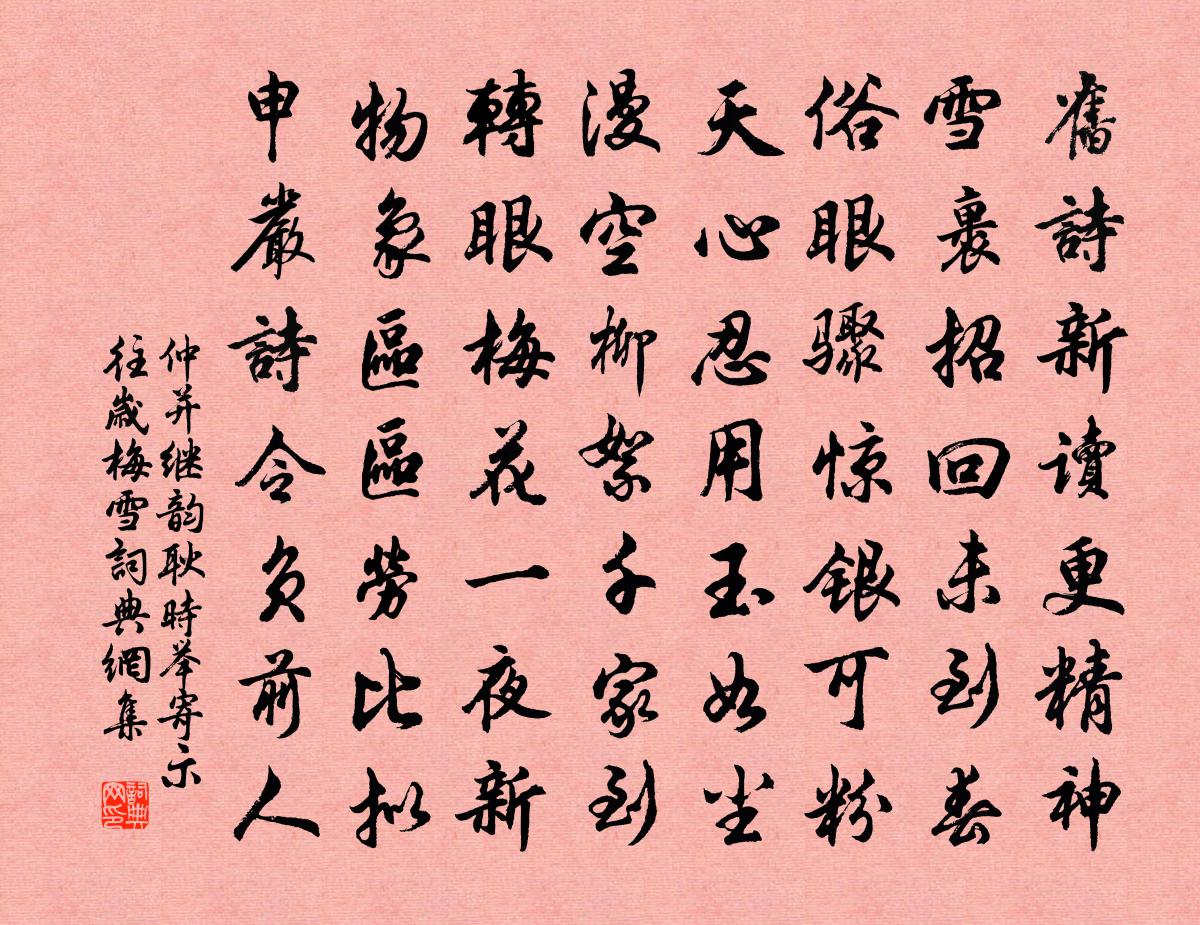 舊詩新讀更精神
雪裏招回未到春
俗眼驟惊銀可粉
天心忍用玉如尘
漫空柳絮千家到
轉眼梅花一夜新
物象區區勞比拟
申嚴詩令负前人
仲并继韵耿時举寄示
往歲梅雪詞典網集
詞典网印